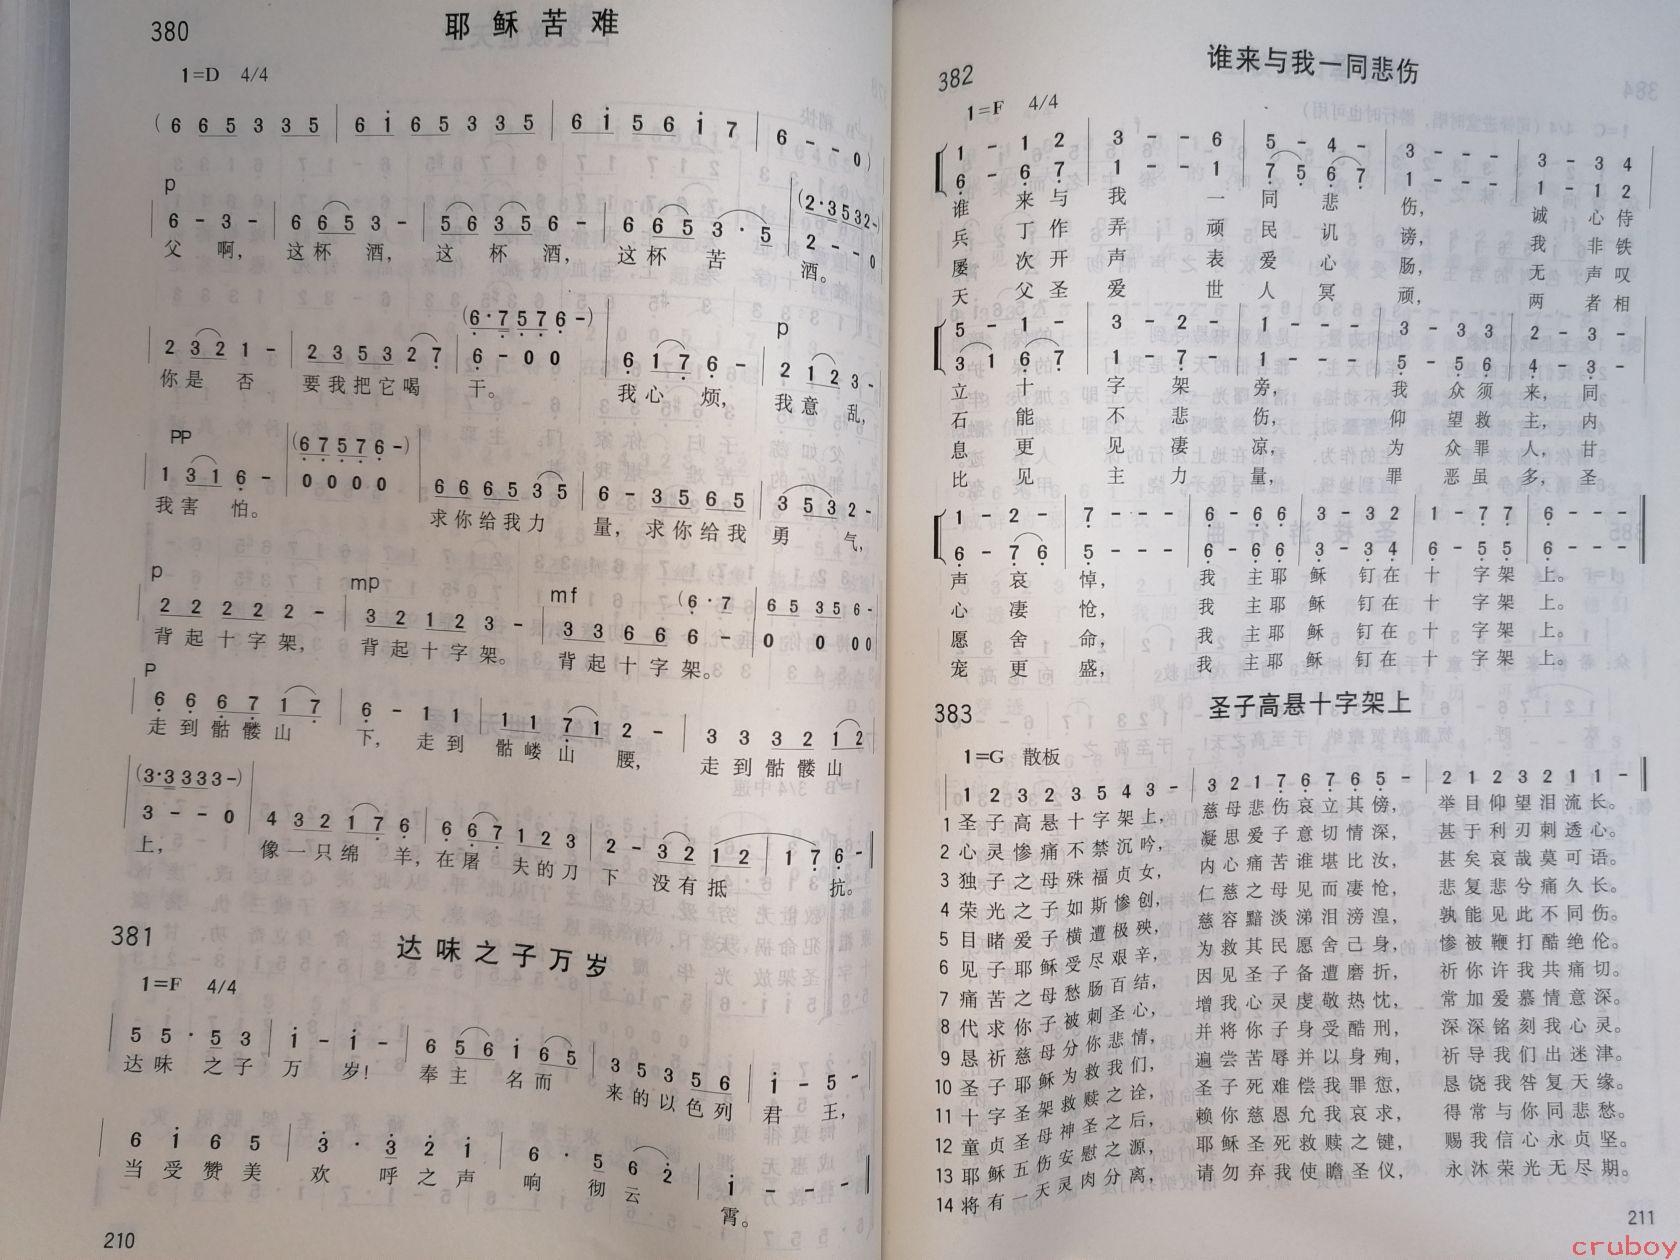 380 耶稣苦难
1=D 4/4
(6 6 5 3 3 5 | 6 i 6 5 3 3 5 | 6 i 5 6 i 7 | 6 - - 0)
p
(2·3532-)
6 - 3 - | 6 6 5 3 - | 5 6 3 5 6 - | 6 6 5 3 · 5 | 2 - - 0
父 啊, 这杯 酒, 这 杯 酒, 这杯 苦 酒。
(6·7576-) p
2 3 2 1 - | 2 3 5 3 2 7 | 6 - 0 0 | 6 1 7 6 - | 2 1 2 3 -
你是 否 要我把它喝 干。 我心 烦, 我意 乱,
pp (67576-)
1 3 1 6 - | 0 0 0 0 | 6 6 6 5 3 5 | 6 - 3 5 6 5 | 3 5 3 2 -
我害 怕。 求你给我力 量, 求你给我 勇 气,
p mp mf (6·7 | 6535 6-
2 2 2 2 2 - | 3 2 1 2 3 - | 3 3 6 6 6 - | 0 0 00
背起十字架, 背起十字架。 背起十字架。
p
6 6 6 7 1 7 | 6 - 1 1 | 1 1 7 1 2 - | 3 3 3 2 1 2
走到骷髅山 下, 走到 骷嵝山 腰, 走到骷髅山
(3·33333-)
3 - - 0 | 4 3 2 1 7 6 | 6 6 7 1 2 3 | 2 - 3 2 1 2 | 1 7 6 -
上, 像一只绵 羊,在屠 夫的刀 下 没有抵 抗。
381 达味之子万岁
1=F 4/4
5 5 · 5 3 | i - i - | 6 5 6 i 6 5 | 3 5 3 5 6 | i - 5 -
达味 之子 万 岁! 奉主 名而 来的以色列 君 王,
6 i 6 5 | 3 · 3 2 i | 6 · 5 6 2 | i - - -
当受赞美 欢 呼之声 响 彻云 霄。
210
382 谁来与我一同悲伤
1=F 4/4
1 - 1 2 | 3 - - 6 | 5 - 4 - | 3 - - - | 3 - 3 4
6 - 6 7 | 1 - - 1 | 7 5 6 7 | 1 - - - | 1 - 1 2
谁 来与 我 一 同 悲 伤, 诚 心侍
兵 丁作 弄 顽 民 讥 谤, 我 非铁
屡 次开 声 表 爱 心 肠, 无 声叹
天 父圣 爱 世 人 冥 顽, 两 者相
5 - 1 - | 3 - 2 - | 1 - - - | 3 - 3 3 | 2 - 3 -
3 1 6 7 | 1 - 7 - | 1 - - - | 5 - 5 6 | 4 - 3 -
立 十 字 架 旁, 我 众须 来, 同
石 能 不 悲 伤, 仰 望救 主, 内
息 更 见 凄 凉, 为 众罪 人, 甘
比 见 主 力 量, 罪 恶虽 多, 圣
1 - 2 - | 7 - - - | 6 - 6 6 | 3 - 3 2 | 1 - 7 7 | 6 - - -
6 - 7 6 | 5 - - - | 6 - 6 6 | 3 - 3 4 | 6 - 5 5 | 6 - - -
声 哀 悼, 我 主耶 稣 钉在 十 字架 上。
心 凄 怆, 我 主耶 稣 钉在 十 字架 上。
愿 舍 命, 我 主耶 稣 钉在 十 字架 上。
宠 更 盛, 我 主耶 稣 钉在 十 字架 上。
383 圣子高悬十字架上
1=G 散板
1 2 3 2 3 5 4 3 - | 3 2 1 7 6 7 6 5 - | 2 1 2 3 2 1 1 -
1 圣子高悬十字架上, 慈母悲伤哀立其傍, 举目仰望泪流长。
2 心灵惨痛不禁沉吟, 凝思爱子意切情深, 甚于利刃刺透心。
3 独子之母殊福贞女, 内心痛苦谁堪比汝, 甚矣哀哉莫可语。
4 荣光之子如斯惨创, 仁慈之母见而凄怆, 悲复悲兮痛久长。
5 目睹爱子横遭极殃, 慈容黯淡涕泪滂湟, 孰能见此不同伤。
6 见子耶稣受尽艰辛, 为救其民愿舍己身, 惨被鞭打酷绝伦。
7 痛苦之母愁肠百结, 因见圣子备遭磨折, 祈你许我共痛切。
8 代求你子被刺圣心, 增我心灵虔敬热忱, 常加爱慕情意深。
9 恳祈慈母分你悲情, 并将你子身受酷刑, 深深铭刻我心灵。
10 圣子耶稣为救我们, 遍尝苦辱并以身殉, 祈导我们出迷津。
11 十字圣架救赎之诠, 圣子死难偿我罪愆, 恳饶我咎复天缘。
12 童贞圣母神圣之后, 赖你慈恩允我哀求, 得常与你同悲愁。
13 耶稣五伤安慰之源, 耶稣圣死救赎之键, 赐我信心永贞坚。
14 将有一天灵肉分离, 请勿弃我使瞻圣仪, 永沐荣光无尽期。
211
cruboy